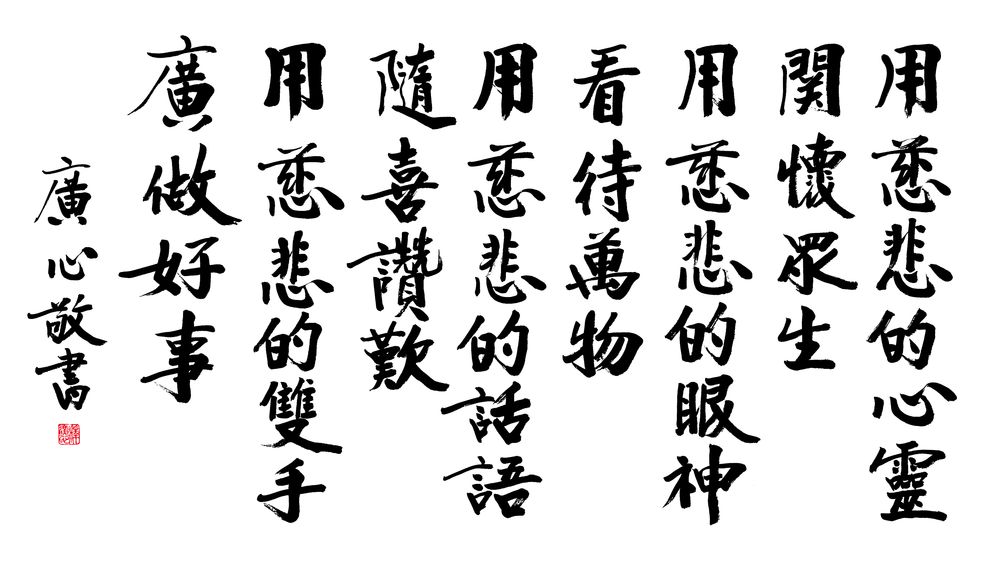 用慈悲的心靈
關懷眾生
用慈悲的眼神
看待萬物
用慈悲的話語
隨喜讚歎
用慈悲的雙手
廣做好事
廣心敬書